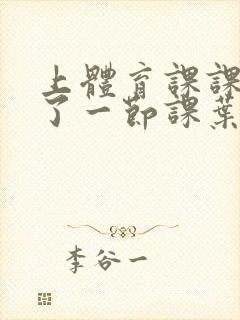 上體育課課
了一節課葉
李谷一